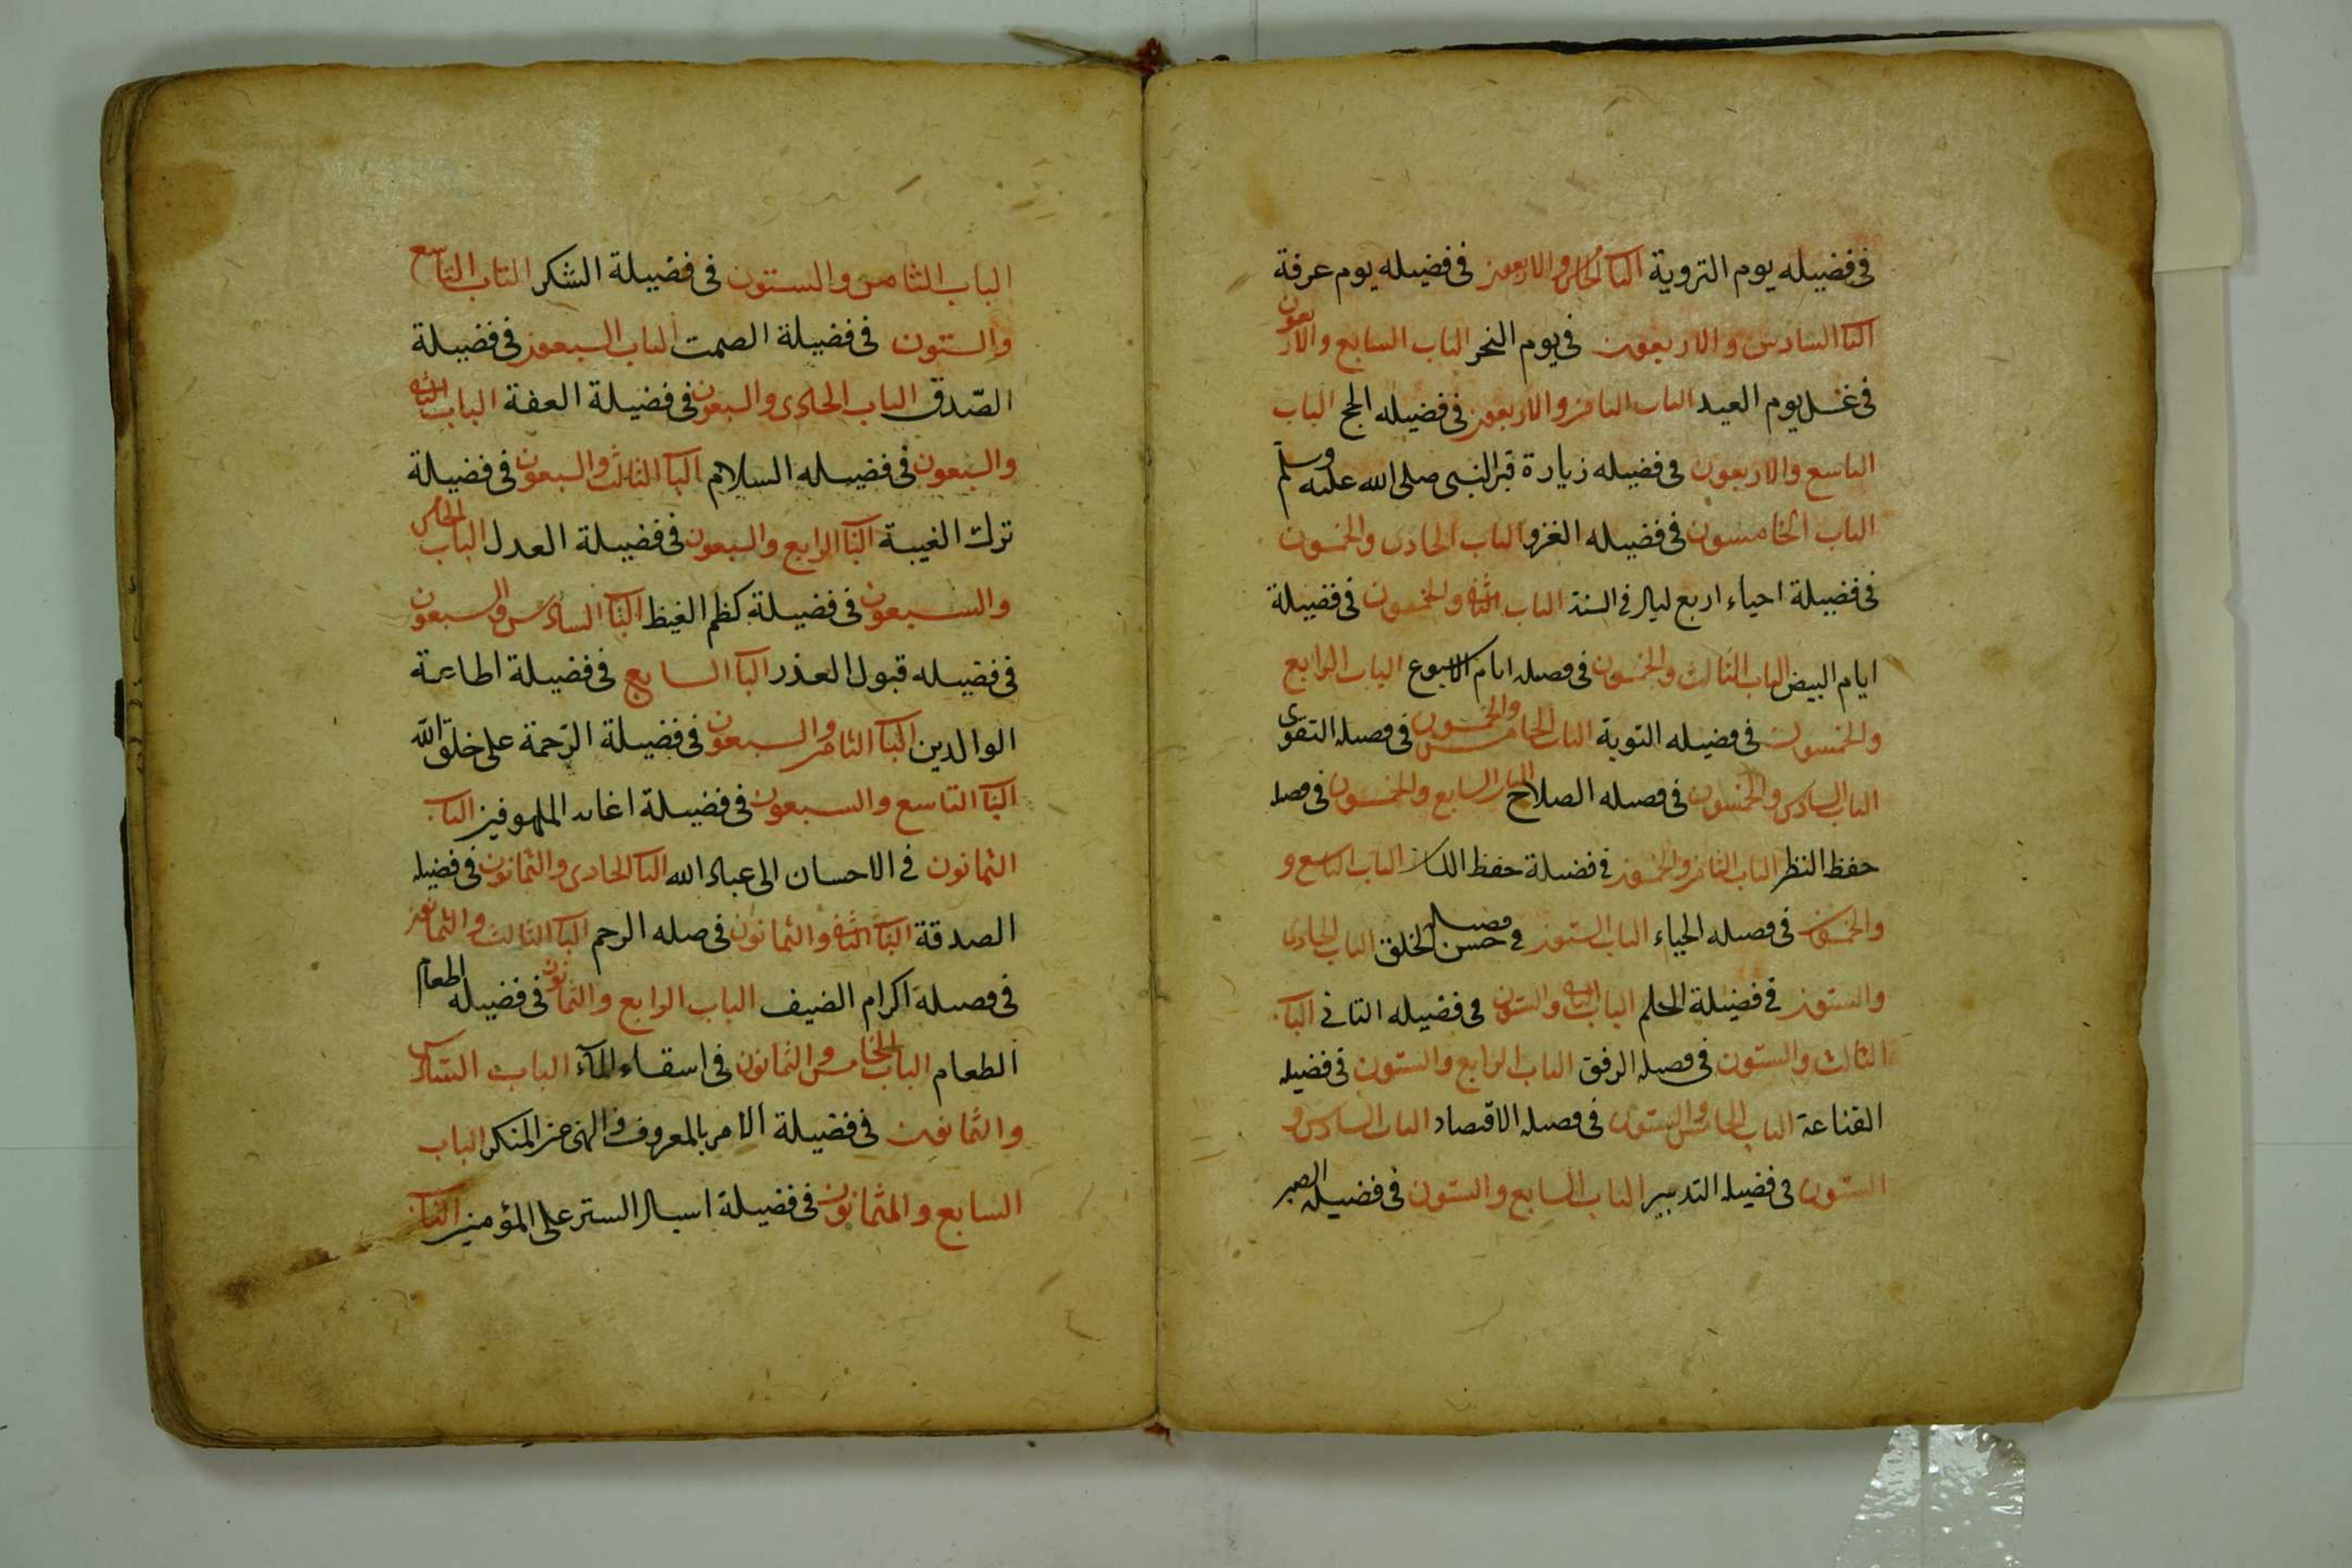 في فضيله يوم التروية البا الخامس والاربعون في فضيله يوم عرفة
البا السادس والاربعون في يوم النحر الباب السابع والاربعون
في غسل يوم العيد الباب الثامن والاربعون في فضيله الحج الباب
التاسع والاربعون في فضيله زيارة قبر النبي صلى الله عليه وسلم
الباب الخامسون في فضيله الغزو الباب الحادى والخمسون
في فضيلة احياء اربع ليال في السنة الباب الثانى والخمسون في فضيلة
ايام البيض الباب الثالث والخمسون في فضيله ايام الاسبوع الباب الرابع
والخمسون في فضيله التوبة الباب الخامس والخمسون في فضيله التقوى
الباب السادس والخمسون في فضيله الصلاح الباب السابع والخمسون في فضيله
حفظ النظر الباب الثامن والخمسون في فضيلة حفظ اللسان الباب التاسع و
والخمسون في فضيله الحياء الباب الستون في فضيله حسن الخلق الباب الحادى
والستون في فضيلة الحلم الباب الثانى والستون في فضيله التانى البا
الثالث والستون في فضيله الرفق الباب الرابع والستون في فضيله
القناعة الباب الخامس والستون في فضيله الاقتصاد الباب السادس و
الستون في فضيله التدبير الباب السابع والستون في فضيله الصبر
الباب الثامن والستون في فضيلة الشكر الباب التاسع
والستون في فضيلة الصمت الباب السبعون في فضيلة
الصّدق الباب الحادى والسبعون في فضيلة العفة الباب الثانى
والسبعون في فضيله السلام البا الثالث والسبعون في فضيلة
ترك الغيبة البا الرابع والسبعون في فضيلة العدل الباب الخامس
والسبعون في فضيلة كظم الغيظ البا السادس والسبعون
في فضيله قبول العذر البا السابع في فضيلة اطاعة
الوالدين البا الثامن والسبعون في فضيلة الرّحمة على خلق الله
البا التاسع والسبعون في فضيلة اغاثة الملهوفين البا
الثمانون في الاحسان الى عباد الله البا الحادى والثمانون في فضيله
الصدقة البا الثانى والثمانون في صله الرحم البا الثالث والثمانون
في فضيلة اكرام الضيف الباب الرابع والثمانون في فضيله اطعام
الطعام الباب الخامس والثمانون في اسقاء المآء الباب السادس
والثمانون في فضيلة الامر بالمعروف والنهى عن المنكر الباب
السابع والثمانون في فضيلة اسبال الستر على المؤمنين البا